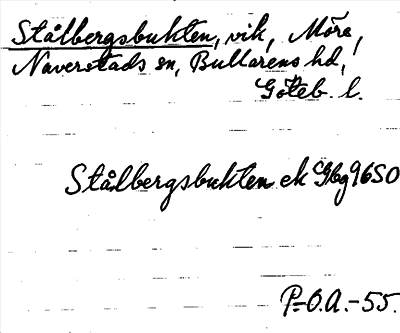 Stålbergsbukten, vik, Möre,
Naverstads sn, Bullarens hd,
Göteb. l.
Stålbergsbukten ek Gbg 96 SO
P-O.A. -55.